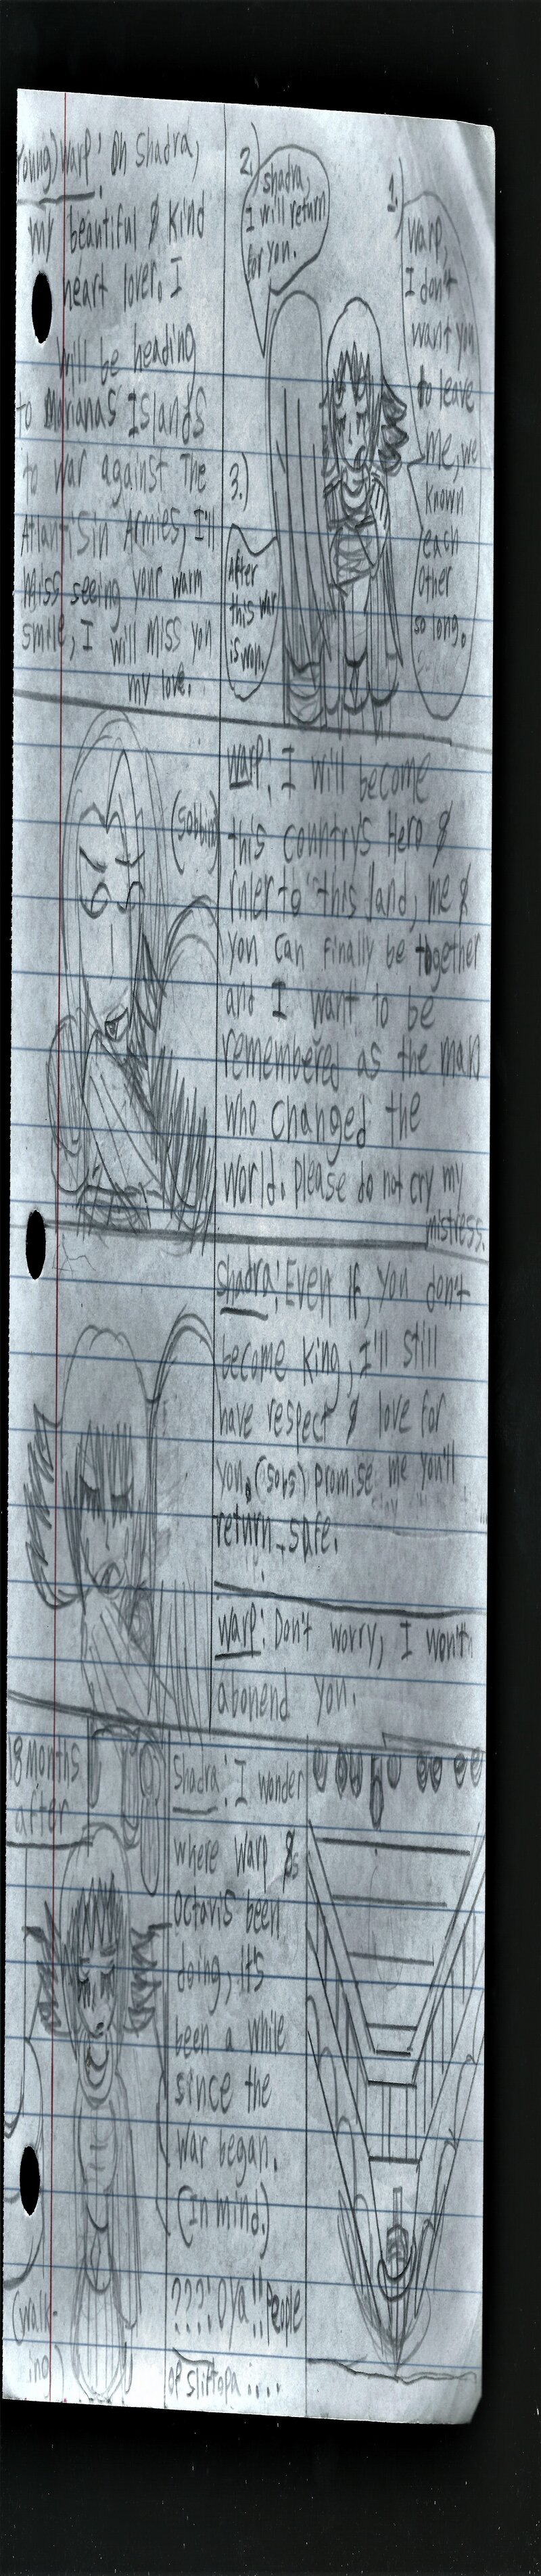 (Young) Warp: Oh Shadra,
my beautiful & kind
heart lover. I
will be heading
to Marianas Islands
to war against the
Atlantisin Armies, I'll
miss seeing your warm
smile, I will miss you
my love.
1.)
Warp,
I don't
want you
to leave
me, we
known
each
other
so long.
2.)
Shadra,
I will return
for you.
3.)
After
this war
is won.
(sobbin)
Warp: I will become
this country's Hero &
ruler to this land, me &
you can finally be together
and I want to be
remembered as the man
who changed the
world. please do not cry my
mistress.
Shadra: Even if, you don't
become King, I'll still
have respect & love for
you. (sobs) promise me you'll
return safe.
Warp: Don't worry, I won't
abonend you.
18 months
after
(walk-
ing)
Shadra: I wonder
where Warp &
Octaris been
doing, it's
been a while
since the
war began.
(In mind.)
???: Oya!! People
of Sliftopa....